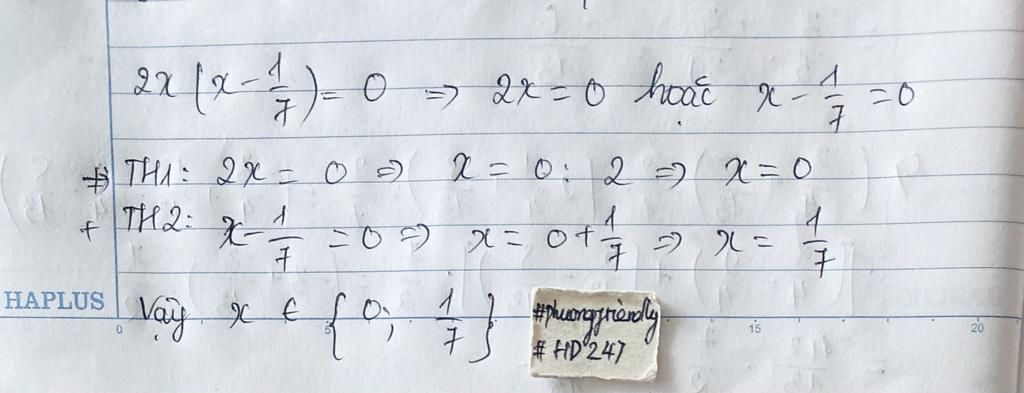 2x(x - 1/7) = 0 => 2x = 0 hoặc x - 1/7 = 0
+) TH1: 2x = 0 => x = 0 : 2 => x = 0
+ TH2: x - 1/7 = 0 => x = 0 + 1/7 => x = 1/7
HAPLUS
Vậy x ∈ {0; 1/7}
#phuongfriendly
# HD 247
0 5 15 20